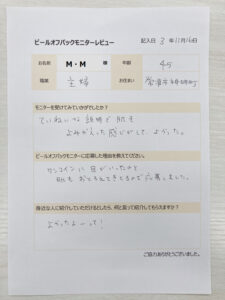 ピールオフパックモニターレビュー
記入日 3 年11月16日
お名前 M・M 様 年齢 45
職業 主婦 お住まい
モニターを受けてみていかがでしたか？
ていねいな説明で肌も
よみがえった感じがして、よかった。
ピールオフパックモニターに応募した理由を教えてください。
ワンコインに目がいったのと
肌もおとろえてきてるので応募しました。
身近な人に紹介していただけるとしたら、何と言って紹介してもらえますか？
よかったよーって！
ご協力ありがとうございました。